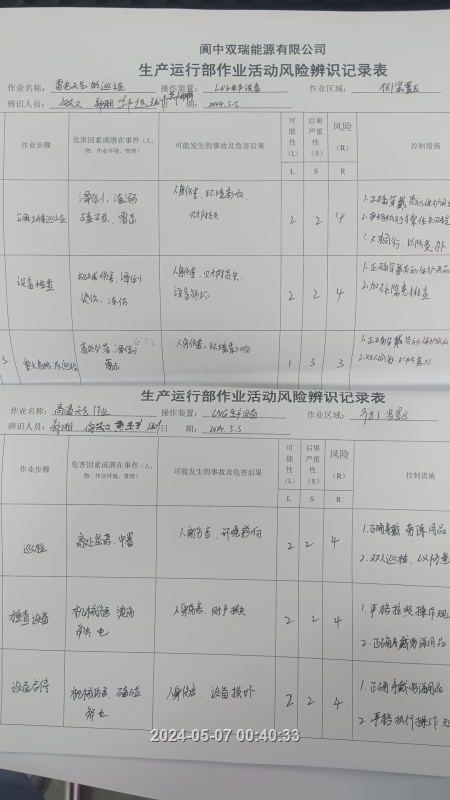 阆中双瑞能源有限公司
生产运行部作业活动风险辨识记录表
作业名称：雷电天气的巡检 操作装置：LNG生产设备 作业区域：
辨识人员： 日 期：2024.5.5
作业步骤 危害因素或潜在事件（人、物、作业环境、管理） 可能发生的事故及危害后果 可能性（L） 后果严重性（S） 风险（R） 控制措施
L S R
人身伤害、环境影响
财产损失
2 2 4
1.正确穿戴劳动保护用品
设备检查 机械伤害、滑倒
烫伤、冻伤
人身伤害、财产损失
设备损坏
2 2 4
1.正确穿戴劳动保护用品
2.加强隐患排查
3 高处坠落、滑倒
雷击
人身伤害、环境影响
1 3 3
1.正确穿戴劳动保护用品
生产运行部作业活动风险辨识记录表
作业名称：高温天气作业 操作装置：LNG生产设备 作业区域：
辨识人员： 日 期：2024.5.5
作业步骤 危害因素或潜在事件（人、物、作业环境、管理） 可能发生的事故及危害后果 可能性（L） 后果严重性（S） 风险（R） 控制措施
L S R
巡检 高处坠落、中暑 人身伤害、环境影响 2 2 4
1.正确穿戴劳保用品
2.双人巡检，以防意
检查设备 机械伤害 烫伤
触电
人身伤害、财产损失 2 2 4
1.严格按照操作规
2.正确穿戴劳保用品
设备启停 机械伤害、碰撞
触电
人身伤害、设备损坏 2 2 4
1.正确穿戴劳保用品
2 严格执行操作规
2024-05-07 00:40:33